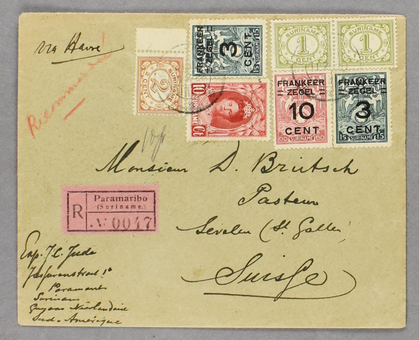 via Havre
Recommandé
SURINAME
2
FRANKEER
ZEGEL
3
CENT
SURINAME
1
SURINAME
1
10
FRANKEER
ZEGEL
10
CENT
FRANKEER
ZEGEL
3
CENT
Monsieur D. Brütsch
Pasteur
Sevelen (St Gallen)
Suisse
R
Paramaribo
(Suriname.)
No 0047
Exp. J.C. Juda
Paramaribo
Surinam
Guyane Néerlandaise
Sud-Amérique